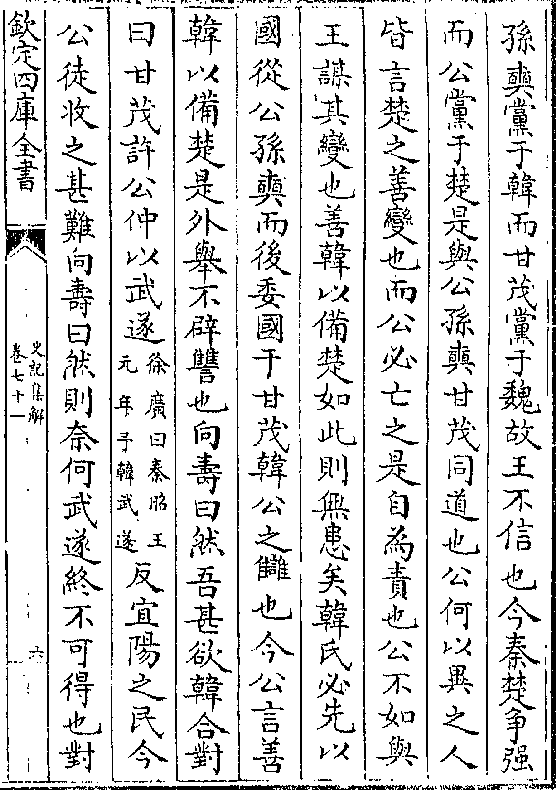 孫奭黨于韓而甘茂黨于魏故王不信也今秦楚争强
而公黨于楚是與公孫奭甘茂同道也公何以異之人
皆言楚之善變也而公必亡之是自為責也公不如與
王謀其變也善韓以備楚如此則無患矣韓氏必先以
國從公孫奭而後委國于甘茂韓公之讎也今公言善
韓以備楚是外舉不辟讐也向壽曰然吾甚欲韓合對
曰甘茂許公仲以武遂徐廣曰秦昭王元年予韓武遂反宜陽之民今
公徒收之甚難向壽曰然則奈何武遂終不可得也對
欽定四庫全書
史記集解
卷七十一
六